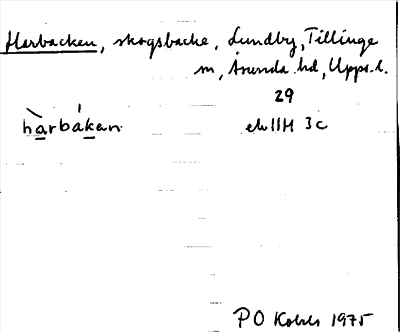 Harbacken, skogsbacke, Lundby, Tillinge
sn, Åsunda hd, Upps. l.
29
hàrbákan ek 11H 3c
PO 1975